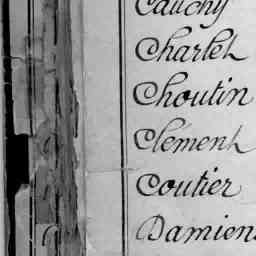 Cauchy
Charlet
Choutin
Clément
Coutier
Damiens